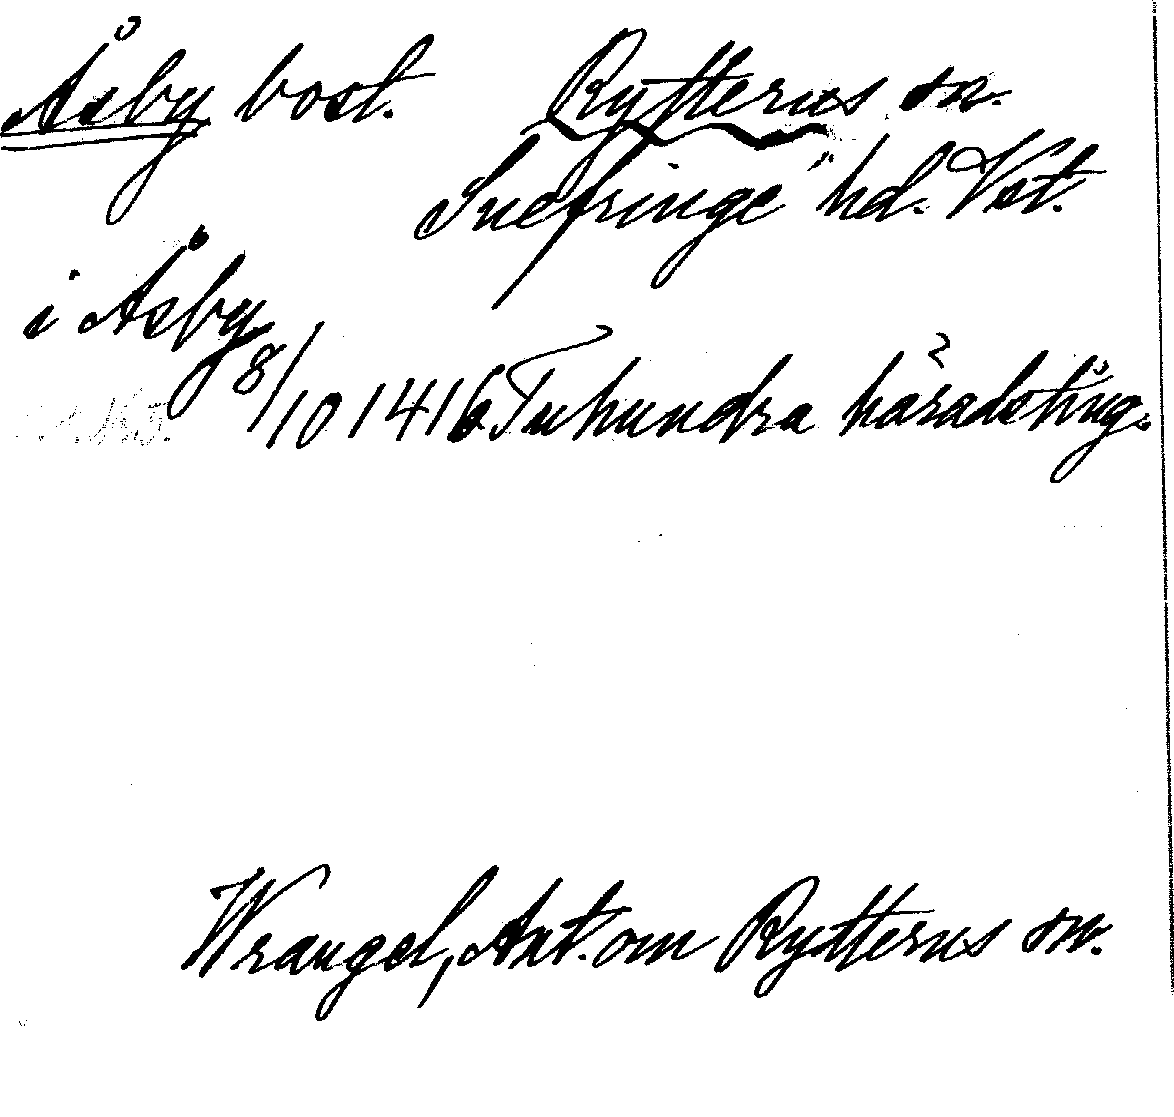 Åsby bost. Rytterus sn.
Snefringe hd. Vst.
i Åsby
8/10 1416 Tuhundra häradsting.
Wrangel, Ant. om Rytterus sn.